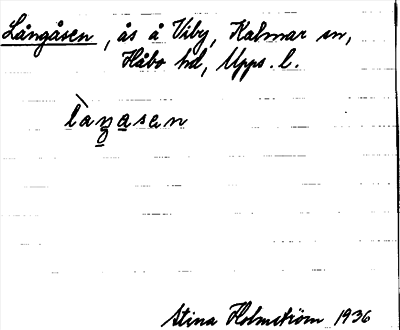 Långåsen, ås å Viby, Kalmar sn,
Håbo hd, Upps. l.
làŋasen
Stina Holmström 1936